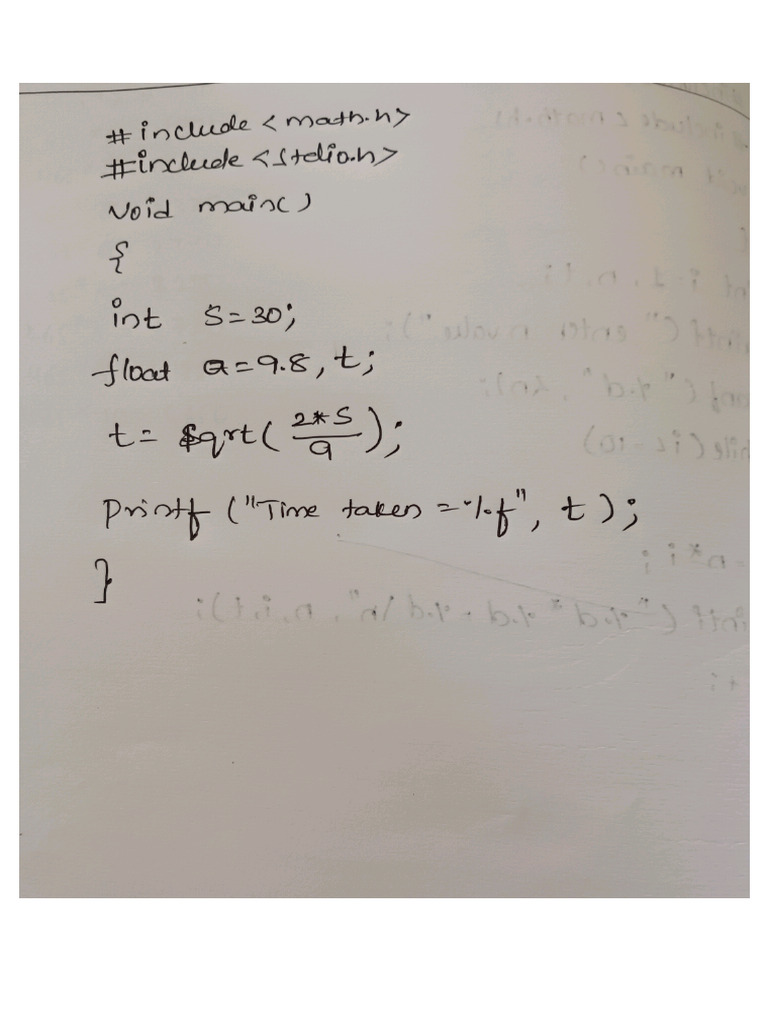 #include <math.h>
#include <stdio.h>
void main()
{
int S=30;
float a=9.8, t;
t= sqrt(2*S/a);
printf ("Time taken =%f", t);
}